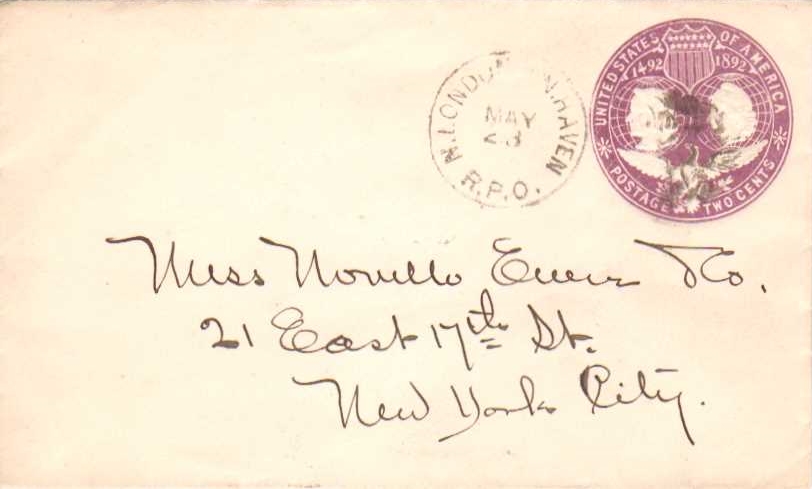 UNITED STATES OF AMERICA
1492 1892
POSTAGE TWO CENTS
N. LONDON N. HAVEN
MAY
R.P.O.
Mess Novello Ewer &Co.
21 East 17th St.
New York City.